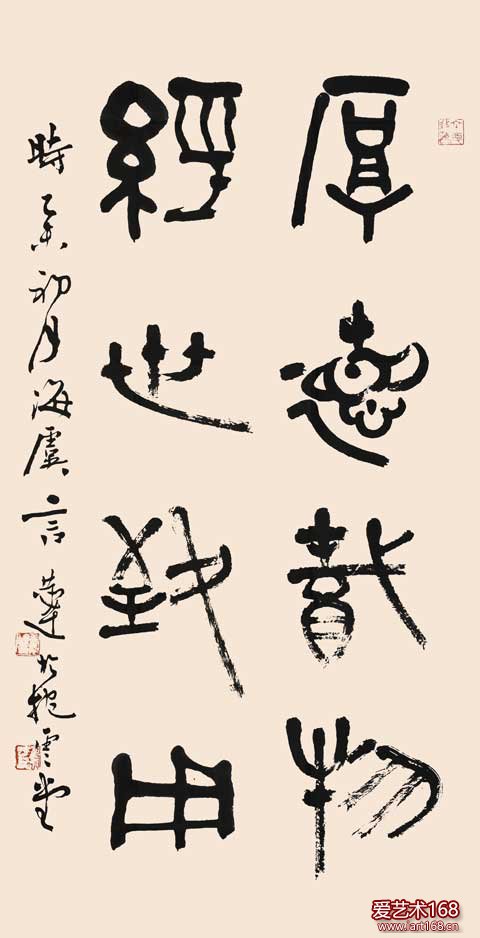 厚德載物
經世致用
時乙未初月海虞言恭達於抱雲堂
爱艺术168
www.iart168.cn